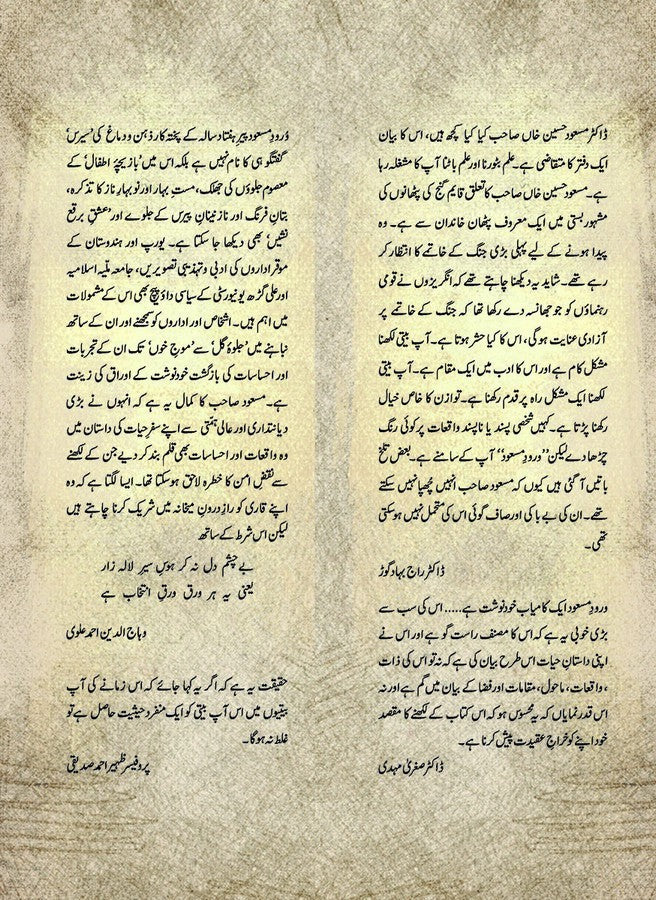 ڈاکٹر مسعود حسین خاں صاحب کیا کیا کچھ ہیں، اس کا بیان
ایک دفتر کا متقاضی ہے۔ علم بٹورنا اور علم بانٹنا آپ کا مشغلہ رہا
ہے۔ مسعود حسین خاں صاحب کا تعلق قایم گنج کی پٹھانوں کی
مشہور بستی میں ایک معروف پٹھان خاندان سے ہے۔ وہ
پیدا ہونے کے لیے پہلی بڑی جنگ کے خاتمے کا انتظار کر
رہے تھے۔ شاید یہ دیکھنا چاہتے تھے کہ انگریزوں نے قومی
رہنماؤں کو جو جھانسہ دے رکھا تھا کہ جنگ کے خاتمے پر
آزادی عنایت ہوگی، اس کا کیا حشر ہوتا ہے۔ آپ بیتی لکھنا
مشکل کام ہے اور اس کا ادب میں ایک مقام ہے۔ آپ بیتی
لکھنا ایک مشکل راہ پر قدم رکھنا ہے۔ توازن کا خاص خیال
رکھنا پڑتا ہے۔ کہیں شخصی پسند یا ناپسند واقعات پر کوئی رنگ
چڑھا دے لیکن ”ورودِ مسعود“ آپ کے سامنے ہے۔ بعض تلخ
باتیں آ گئی ہیں کیوں کہ مسعود صاحب انہیں چھپا نہیں سکتے
تھے۔ ان کی بے باکی اور صاف گوئی اس کی متحمل نہیں ہو سکتی
تھی۔
ڈاکٹر راج بہادر گوڑ
ورودِ مسعود ایک کامیاب خودنوشت ہے..... اس کی سب سے
بڑی خوبی یہ ہے کہ اس کا مصنف راست گو ہے اور اس نے
اپنی داستانِ حیات اس طرح بیان کی ہے کہ نہ تو اس کی ذات
، واقعات، ماحول، مقامات اور فضا کے بیان میں گم ہے اور نہ
اس قدر نمایاں کہ یہ محسوس ہو کہ اس کتاب کے لکھنے کا مقصد
خود اپنے کو خراجِ عقیدت پیش کرنا ہے۔
ڈاکٹر صغریٰ مہدی
وُرودِ مسعود پیرِ ہفتاد سالہ کے پختہ کار ذہن و دماغ کی ’سیرس‘
گفتگو ہی کا نام نہیں ہے بلکہ اس میں ’بازیچۂ اطفال‘ کے
معصوم جلوؤں کی جھلک، مستِ بہار اور نو بہارِ ناز کا تذکرہ،
بتانِ فرنگ اور نازنینانِ پیرس کے جلوے اور ’عشقِ برقع
نشیں‘ بھی دیکھا جا سکتا ہے۔ یورپ اور ہندوستان کے
موقر اداروں کی ادبی و تہذیبی تصویریں، جامعہ ملّیہ اسلامیہ
اور علی گڑھ یونیورسٹی کے سیاسی داؤ پیچ بھی اس کے مشمولات
میں اہم ہیں۔ اشخاص اور اداروں کو سمجھنے اور ان کے ساتھ
نباہنے میں ’جلوۂ گل‘ سے ’موجِ خوں‘ تک ان کے تجربات
اور احساسات کی بازگشت خودنوشت کے اوراق کی زینت
ہے۔ مسعود صاحب کا کمال یہ ہے کہ انہوں نے بڑی
دیانتداری اور عالی ہمّتی سے اپنے سفرِ حیات کی داستان میں
وہ واقعات اور احساسات بھی قلم بند کر دیے جن کے لکھنے
سے نقضِ امن کا خطرہ لاحق ہو سکتا تھا۔ ایسا لگتا ہے کہ وہ
اپنے قاری کو رازِ درونِ میخانہ میں شریک کرنا چاہتے ہیں
لیکن اس شرط کے ساتھ
بے چشمِ دل نہ کر ہوسِ سیرِ لالہ زار
یعنی یہ ہر ورق ورقِ انتخاب ہے
وہاج الدین احمد علوی
حقیقت یہ ہے کہ اگر یہ کہا جائے کہ اس زمانے کی آپ
بیتیوں میں اس آپ بیتی کو ایک منفرد حیثیت حاصل ہے تو
غلط نہ ہوگا۔
پروفیسر ظہیر احمد صدیقی